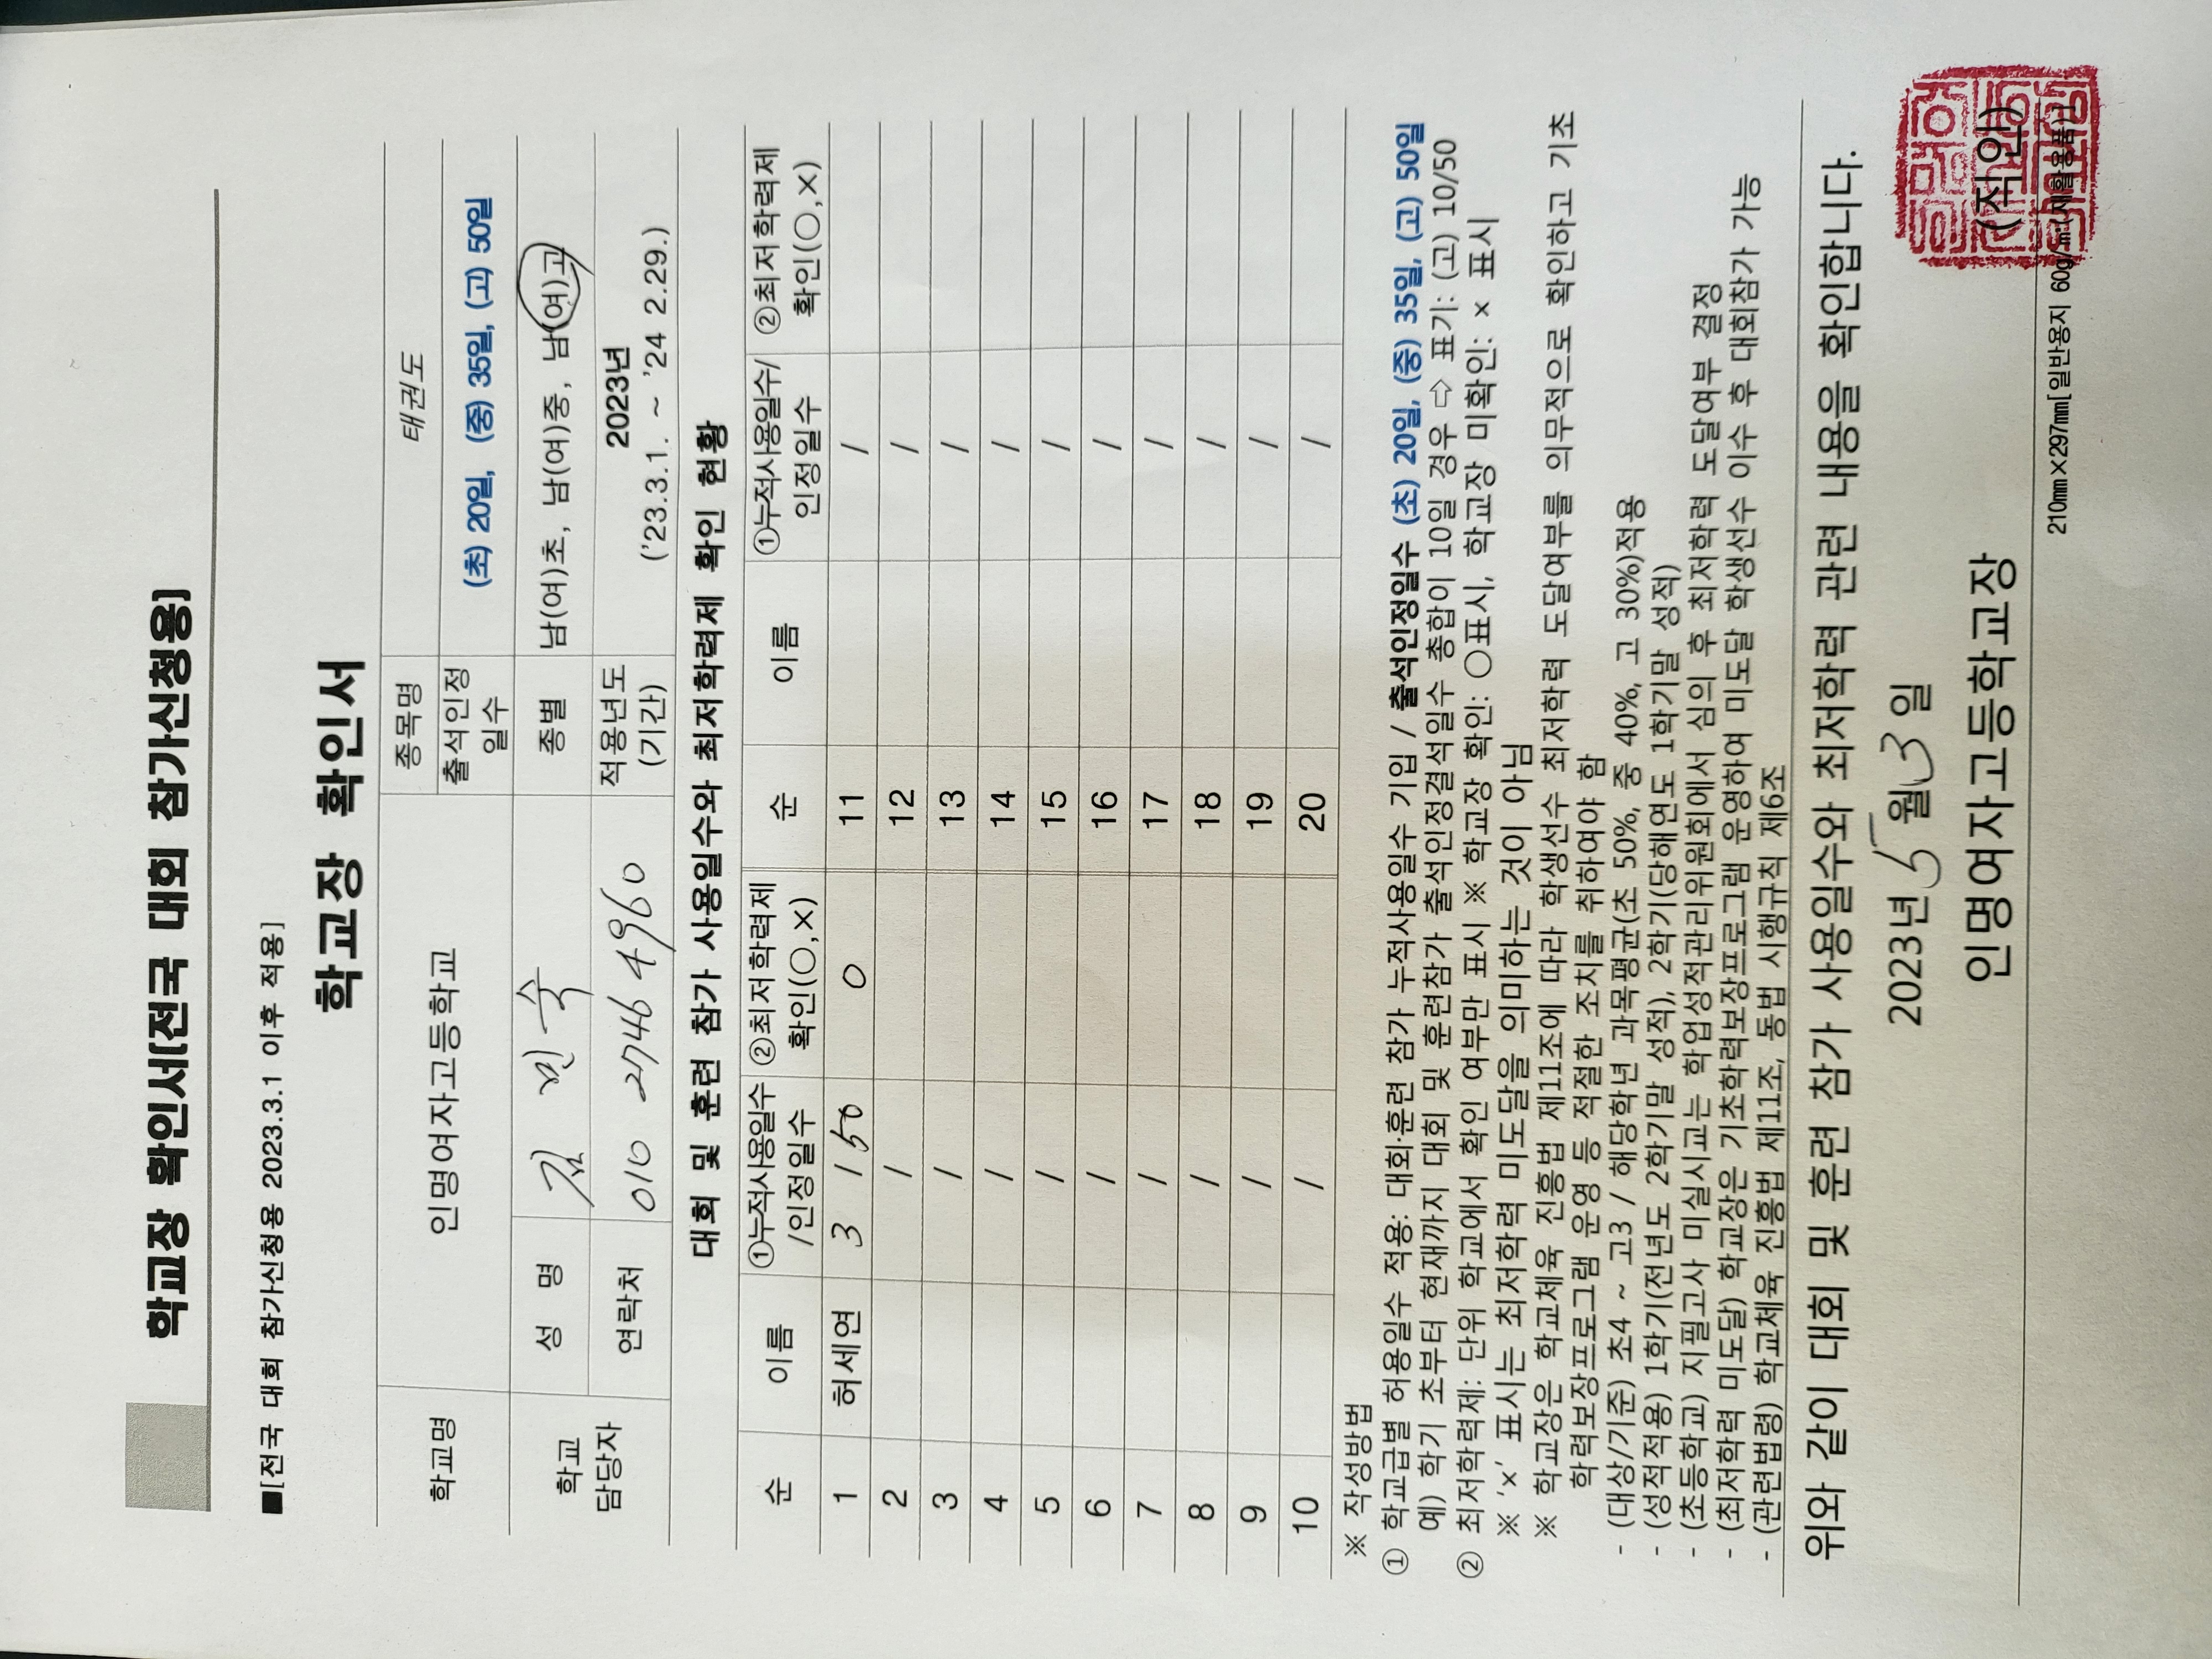 학교장 확인서[전국 대회 참가신청용]
■[전국 대회 참가신청용 2023.3.1 이후 적용]
학교장 확인서
학교명 인명여자고등학교 종목명 태권도
출석인정 일수 (초) 20일, (중) 35일, (고) 50일
학교 담당자 성 명 김 민 숙 종별 남(여)초, 남(여)중, 남(여)고
연락처 010 2746 4960 적용년도 (기간) 2023년 ('23.3.1. ~ '24 2.29.)
대회 및 훈련 참가 사용일수와 최저학력제 확인 현황
순 이름 ①누적사용일수/인정일수 ②최저학력제 확인(○,×) 순 이름 ①누적사용일수/인정일수 ②최저학력제 확인(○,×)
1 허세연 3 / 50 0 11 /
2 / 12 /
3 / 13 /
4 / 14 /
5 / 15 /
6 / 16 /
7 / 17 /
8 / 18 /
9 / 19 /
10 / 20 /
※ 작성방법
① 학교급별 허용일수 적용: 대회·훈련 참가 누적사용일수 기입 / 출석인정일수 (초) 20일, (중) 35일, (고) 50일
예) 학기 초부터 현재까지 대회 및 훈련참가 출석인정결석일수 총합이 10일 경우 ⇨ 표기: (고) 10/50
② 최저학력제: 단위 학교에서 확인 여부만 표시 ※ 학교장 확인: ○표시, 학교장 미확인: × 표시
※ '×' 표시는 최저학력 미도달을 의미하는 것이 아님
※ 학교장은 학교체육 진흥법 제11조에 따라 학생선수 최저학력 도달여부를 의무적으로 확인하고 기초
학력보장프로그램 운영 등 적절한 조치를 취하여야 함
- (대상/기준) 초4 ~ 고3 / 해당학년 과목평균(초 50%, 중 40%, 고 30%)적용
- (성적적용) 1학기(전년도 2학기말 성적), 2학기(당해연도 1학기말 성적)
- (초등학교) 지필고사 미실시교는 학업성적관리위원회에서 심의 후 최저학력 도달여부 결정
- (최저학력 미도달) 학교장은 기초학력보장프로그램 운영하여 미도달 학생선수 이수 후 대회참가 가능
- (관련법령) 학교체육 진흥법 제11조, 동법 시행규칙 제6조
위와 같이 대회 및 훈련 참가 사용일수와 최저학력 관련 내용을 확인합니다.
2023년 5월 3일
인명여자고등학교장 (직인)
210mm×297mm[일반용지 60g/㎡(재활용품)]